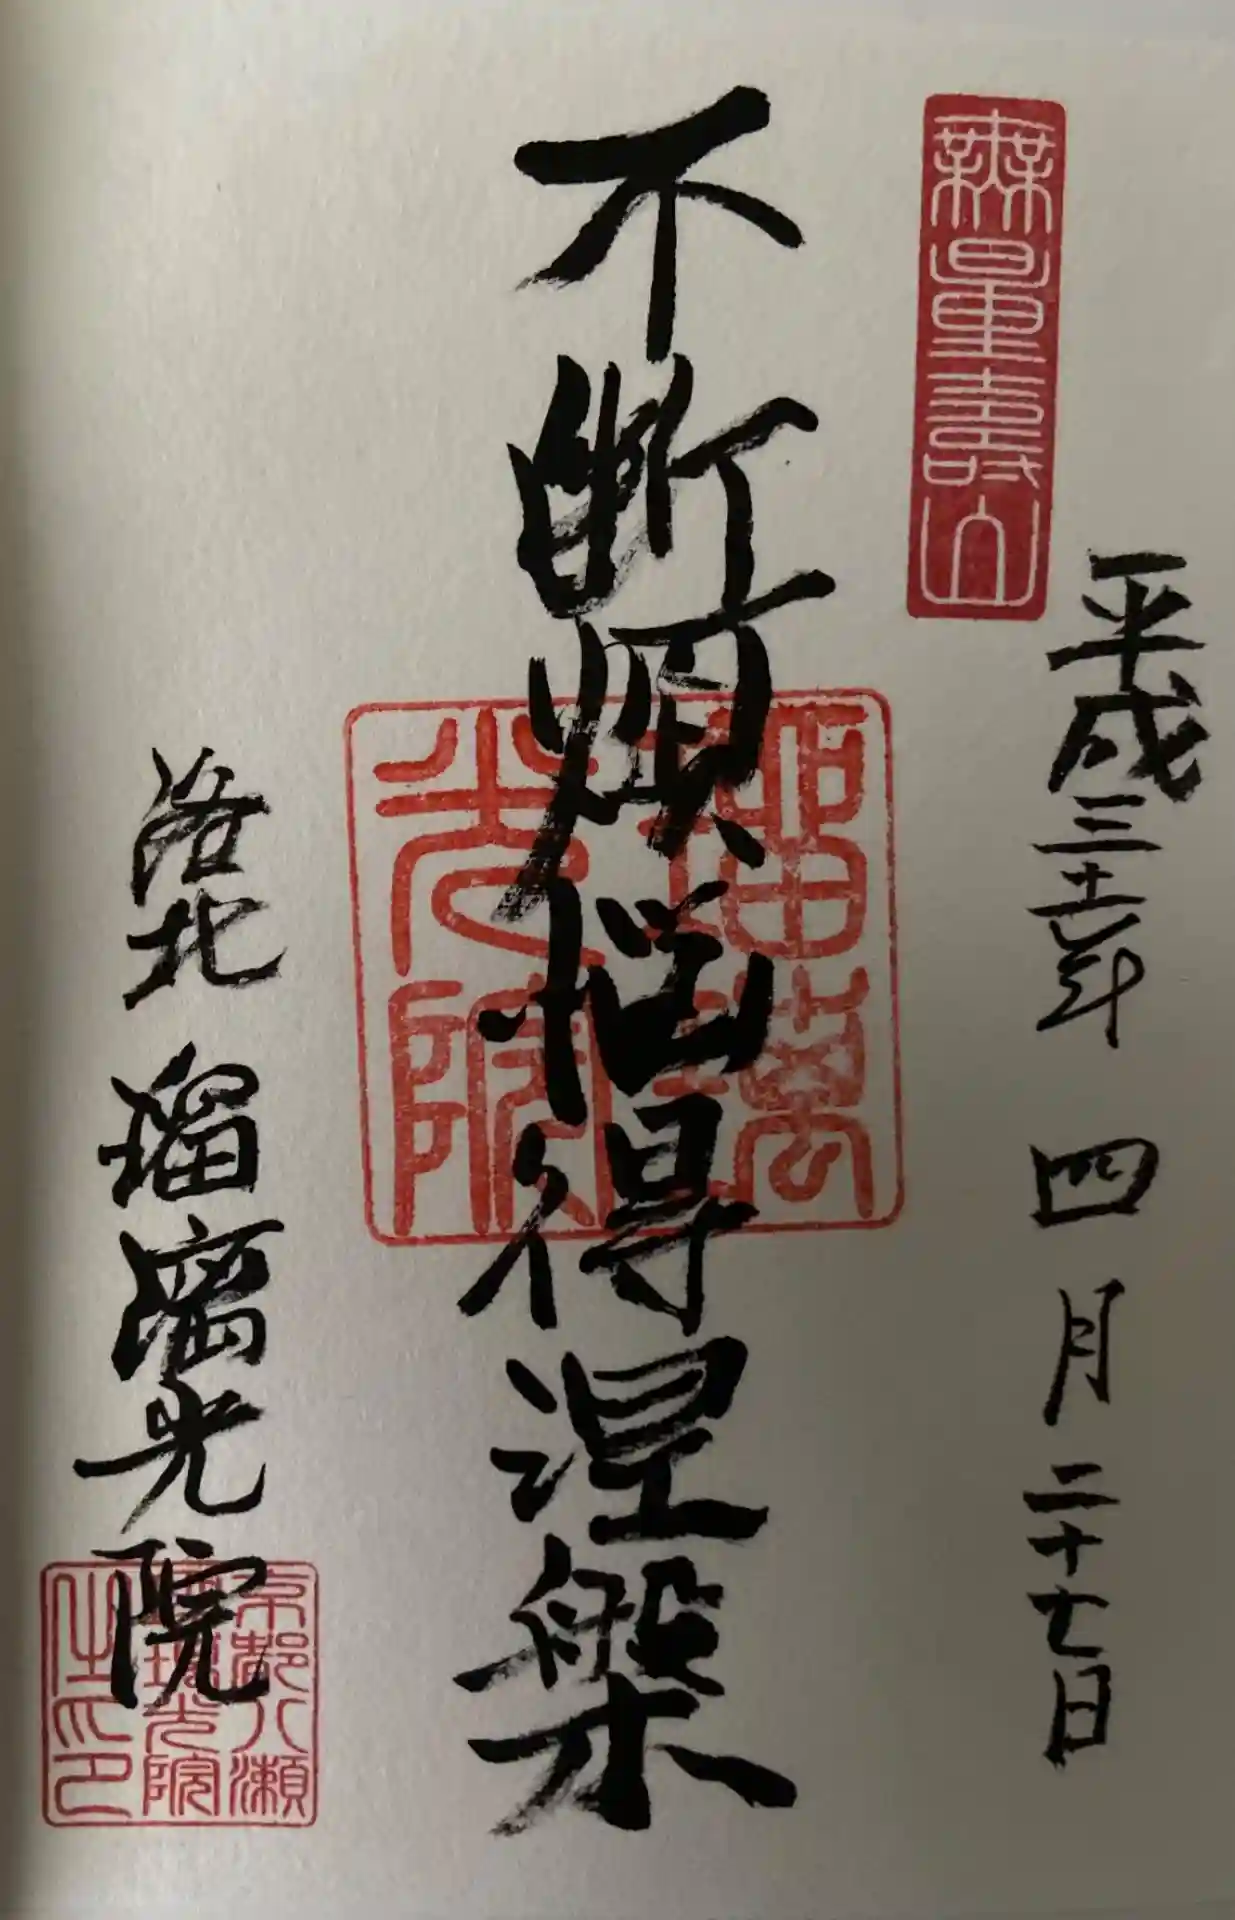 無量壽山
平成三十一年 四月二十七日
不断煩悩得涅槃
瑠璃
光院
洛北 瑠璃光院
京都八瀬
瑠璃光院
之印